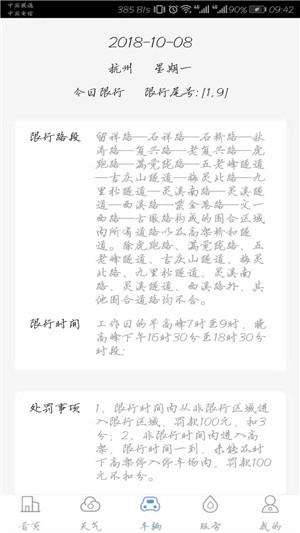 中国联通
中国电信
385 B/s 90% 09:42
2018-10-08
杭州 星期一
今日限行 限行尾号:[1,9]
限行路段
留祥路—石祥路—石桥路—秋
涛路—复兴路—老复兴路—虎
跑路—满觉陇路—五老峰隧道
—吉庆山隧道—梅灵北路—九
里松隧道—灵溪南路—灵溪隧
道—西溪路—紫金港路—文一
西路—古墩路构成的围合区域
内所有道路以及高架桥和隧
道。除虎跑路、满觉陇路、五
老峰隧道、吉庆山隧道、梅灵
北路、九里松隧道、灵溪南
路、灵溪隧道、西溪路外,其
他围合道路均不含。
限行时间
工作日的早高峰7时至9时,晚
高峰下午16时30分至18时30分
时段;
处罚事项
1、限行时间内从非限行区域进
入限行区域,罚款100元,扣3
分;2、非限行时间内进入高
架,限行时间一到,未能及时
下高架停入停车场内,罚款100
元不扣分。
首页 天气 车辆 服务 我的